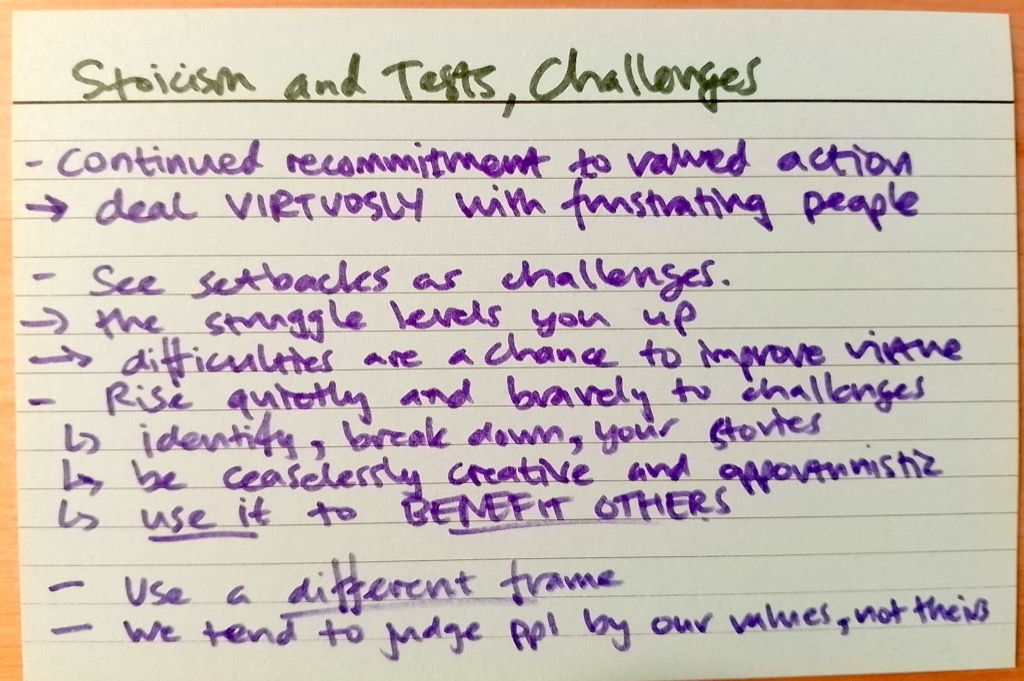 Stoicism and Tests, Challenges
- Continued recommitment to valued action
→ deal VIRTUOSLY with frustrating people
- See setbacks as challenges.
→ the struggle levels you up
→ difficulties are a chance to improve virtue
- Rise quietly and bravely to challenges
↳ identify, break down, your stories
↳ be ceaselessly creative and opportunnistic
↳ use it to BENEFIT OTHERS
- Use a different frame
- We tend to judge ppl by our values, not theirs